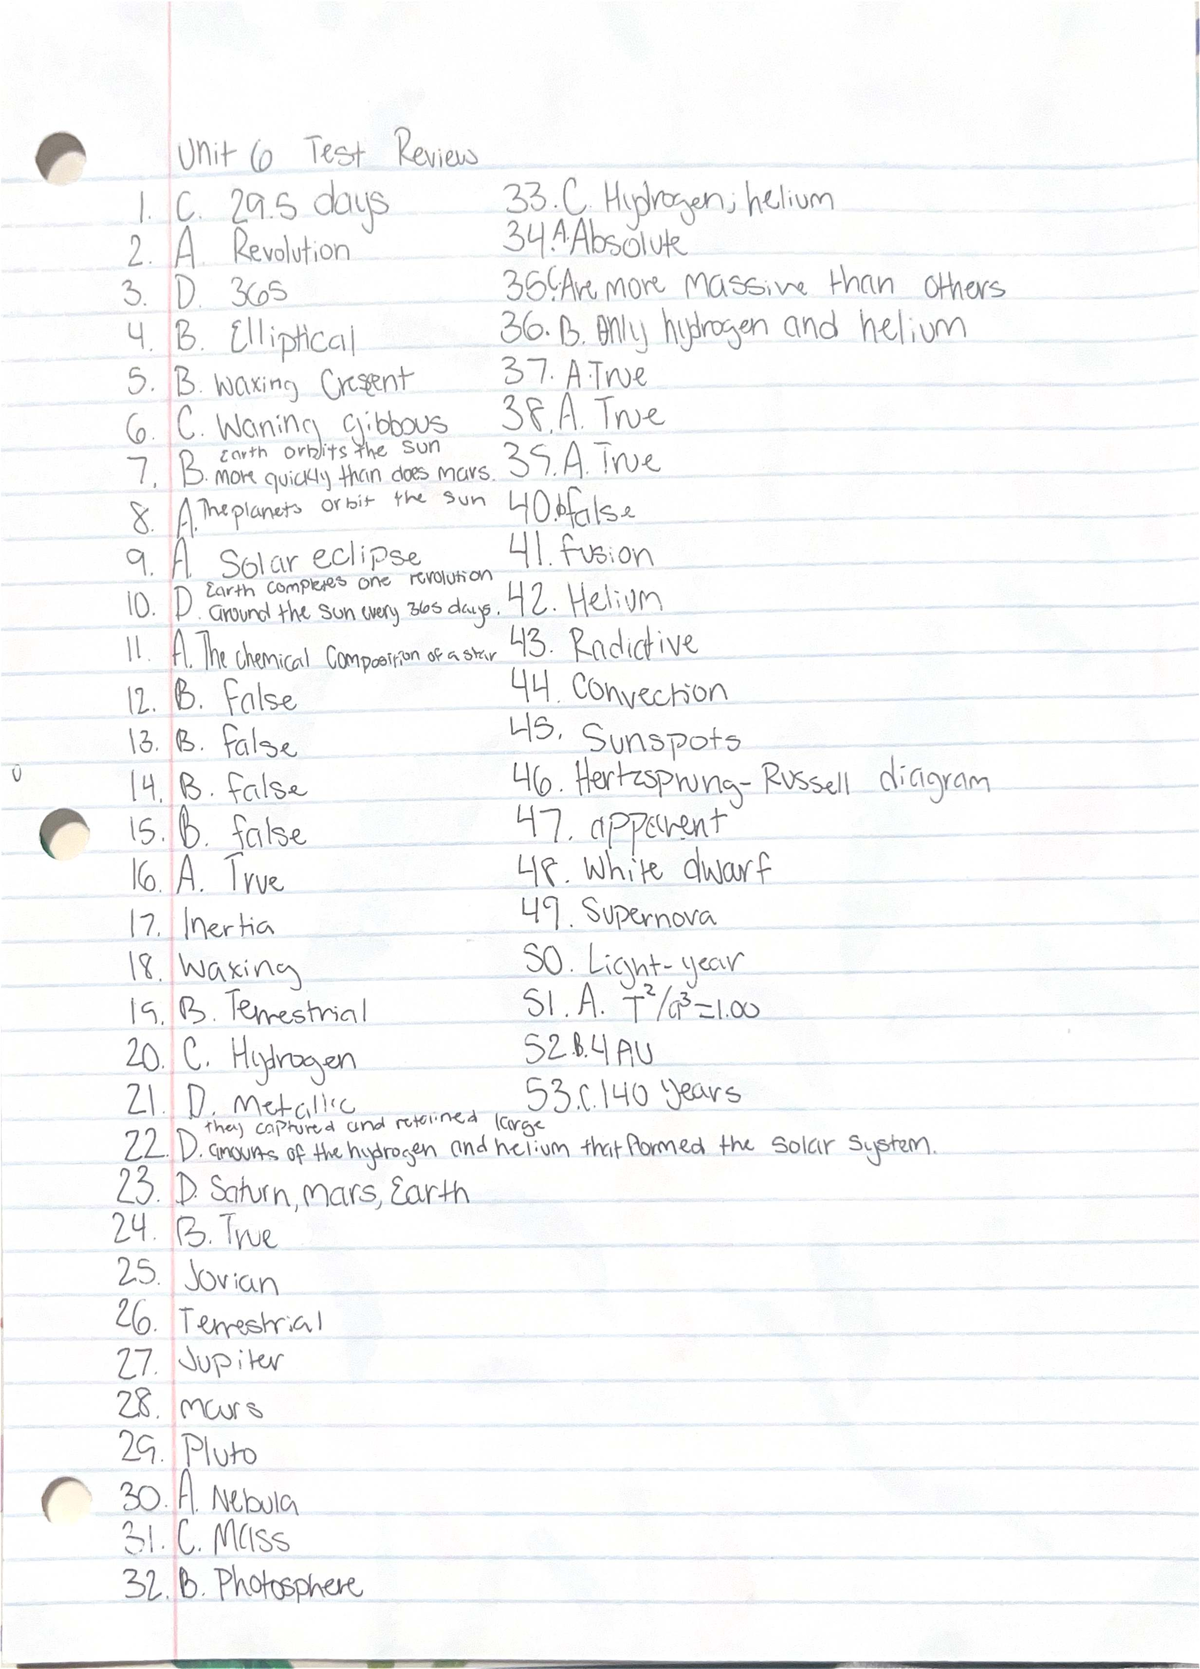 Unit 6 Test Review
1. C. 29.5 days
2. A Revolution
3. D. 365
4. B. Elliptical
5. B. Waxing Cresent
6. C. Waning gibbous
7. B. Earth orbits the sun
more quickly than does mars.
8. A. The planets orbit the sun
9. A Solar eclipse
10. D. Earth completes one revolution
around the sun every 365 days.
11. A. The chemical composition of a star
12. B. false
13. B. false
14. B. false
15. B. false
16. A. True
17. Inertia
18. Waxing
19. B. Terrestrial
20. C. Hydrogen
21. D. Metallic
22. D. they captured and retained large
amounts of the hydrogen and helium that formed the solar system.
23. D. Saturn, Mars, Earth
24. B. True
25. Jovian
26. Terrestrial
27. Jupiter
28. mars
29. Pluto
30. A. Nebula
31. C. Mass
32. B. Photosphere
33. C. Hydrogen; helium
34. A. Absolute
35. C. Are more massive than others
36. B. Only hydrogen and helium
37. A. True
38. A. True
39. A. True
40. b false
41. fusion
42. Helium
43. Radictive
44. Convection
45. Sunspots
46. Hertzsprung-Russell diagram
47. apparent
48. White dwarf
49. Supernova
50. Light-year
51. A. T²/a³=1.00
52. B. 4 AU
53. C. 140 years